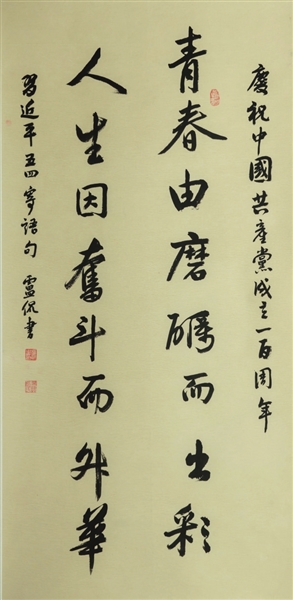 慶祝中國共產黨成立一百周年
青春由磨礪而出彩
人生因奮斗而升華
習近平五四寄語句 盧侃書